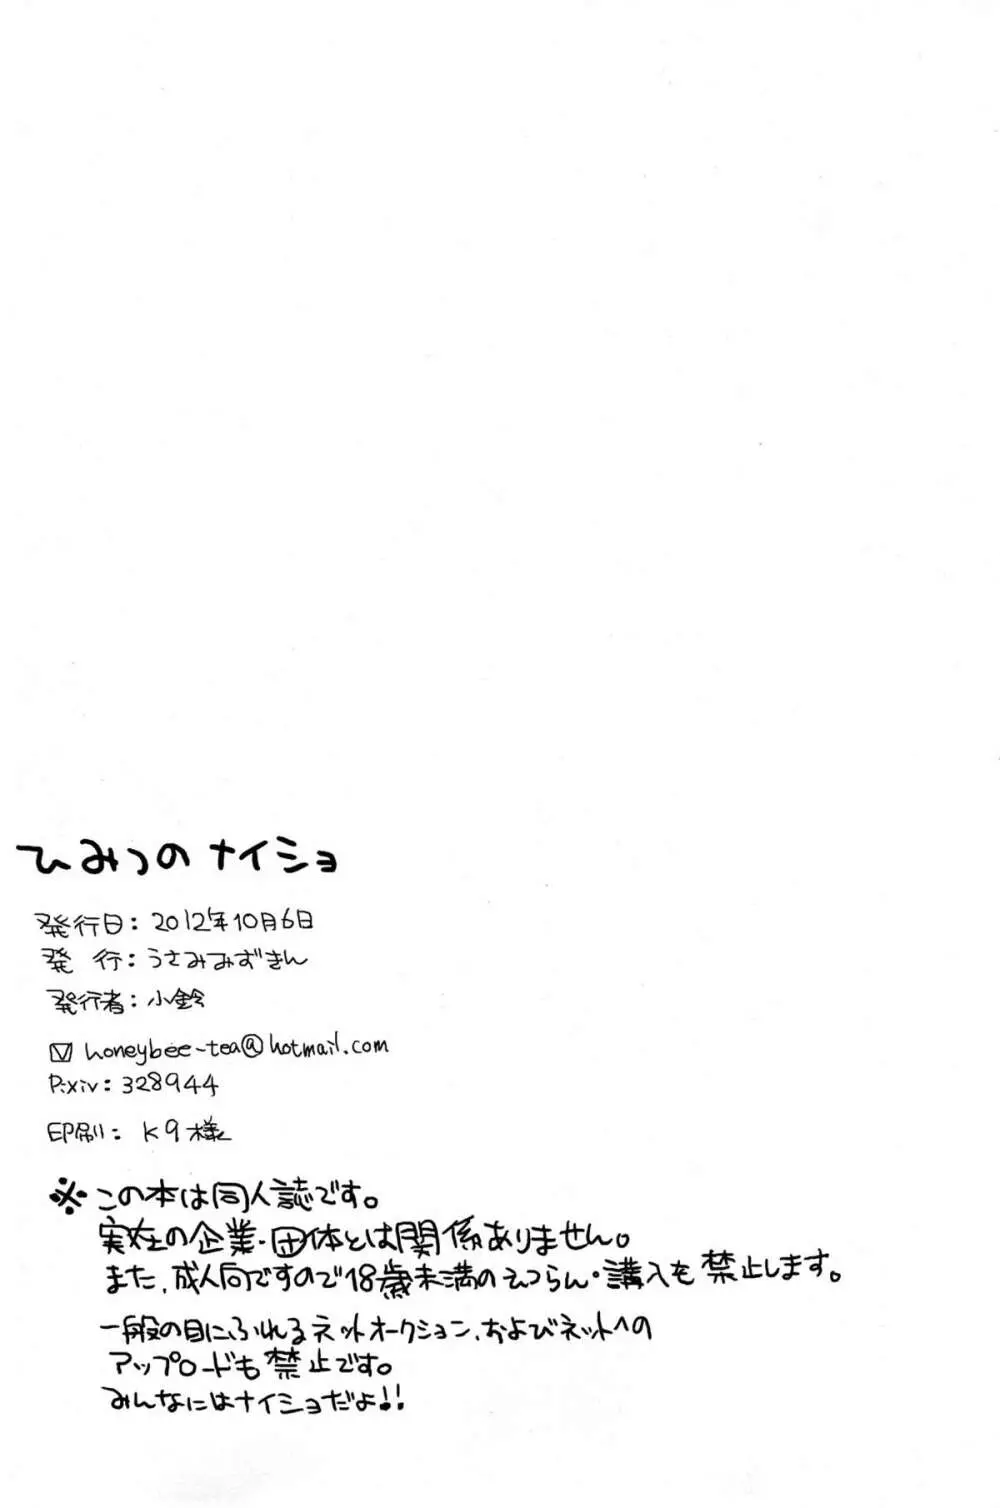 ひみつのナイショ
発行日：2012年10月6日
発行：うさみみずきん
発行者：小鈴
honeybee-tea@hotmail.com
Pixiv：328944
印刷：K9様
※この本は同人誌です。
実在の企業・団体とは関係ありません。
また、成人向ですので18歳未満のえつらん・講入も禁止します。
一般の目にふれるネットオークション、およびネットへの
アップロードも禁止です。
みんなにはナイショだよ!!